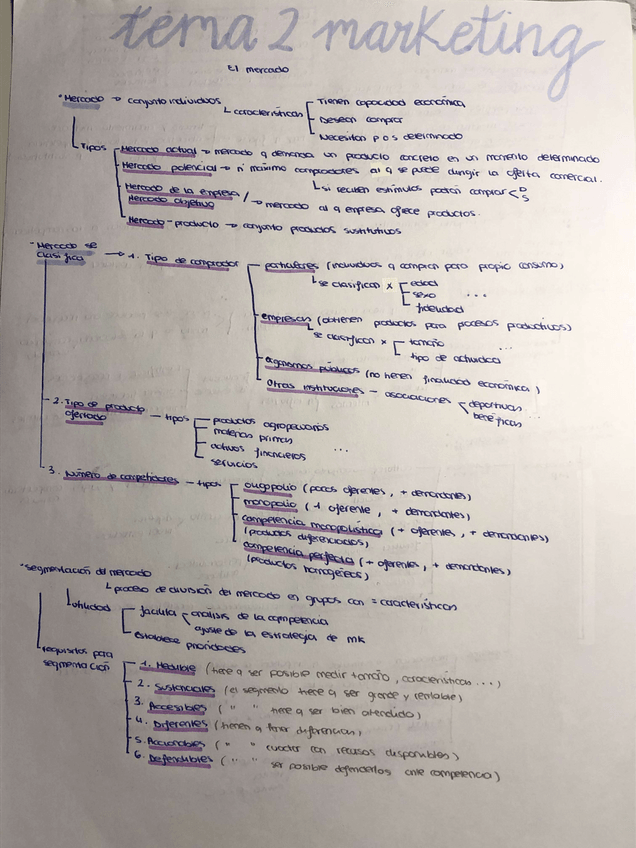 tema 2 marketing
El mercado
· Mercado → conjunto individuos
características
Tienen capacidad económica
Desean comprar
Necesitan p o s determinado
Tipos
Mercado actual → mercado q demanda un producto concreto en un momento determinado
Mercado potencial → nº máximo compradores al q se puede dirigir la oferta comercial.
si reciben estímulos podrán comprar
Mercado de la empresa /
Mercado objetivo → mercado al q empresa ofrece productos.
Mercado-producto → conjunto productos sustitutivos
· Mercado se clasifica → 1. Tipo de comprador
particulares (individuos q compran para propio consumo)
se clasifican x
edad
sexo ...
fidelidad
empresas (obtienen productos para procesos productivos)
se clasifican x
tamaño ...
tipo de actividad
organismos públicos (no tienen finalidad económica)
otras instituciones - asociaciones
deportivas
benéficas ...
2. Tipo de producto ofertado - tipos
productos agropecuarios
materias primas
activos financieros ...
servicios
3. Número de competidores - tipos
oligopolio (pocos oferentes, + demandantes)
monopolio (1 oferente, + demandantes)
competencia monopolística (+ oferentes, + demandantes)
(productos diferenciados)
competencia perfecta (+ oferentes, + demandantes)
(productos homogéneos)
· Segmentación del mercado
proceso de división del mercado en grupos con = características
utilidad
facilita
análisis de la competencia
ajuste de la estrategia de mk
establece prioridades
requisitos para segmentación
1. Medible (tiene q ser posible medir tamaño, características...)
2. Sustanciales (el segmento tiene q ser grande y rentable)
3. Accesibles ( " " tiene q ser bien atendido)
4. Diferentes (tienen q tener diferencias)
5. Accionables ( " " cuadrar con recursos disponibles)
6. Defendibles ( " " ser posible defenderlos ante competencia)